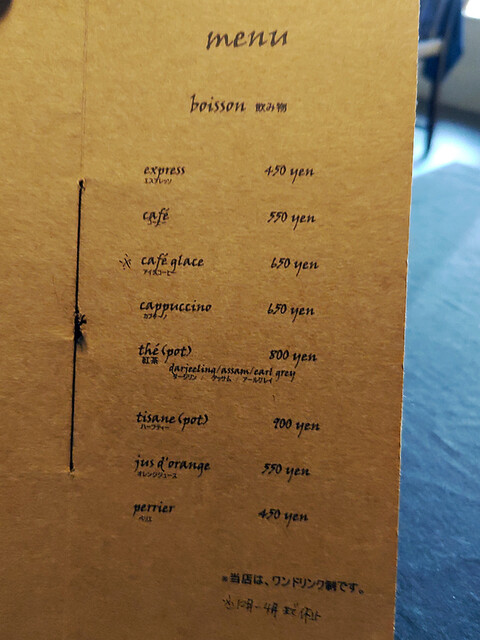 menu
boisson 飲み物
express 450 yen
エスプレッソ
café 550 yen
コーヒー
※ café glace 650 yen
アイスコーヒー
cappuccino 650 yen
カプチーノ
thé (pot) 800 yen
紅茶
darjeeling/assam/earl grey
ダージリン アッサム アールグレイ
tisane (pot) 900 yen
ハーブティー
jus d'orange 550 yen
オレンジジュース
perrier 450 yen
ペリエ
※当店は、ワンドリンク制です。
※ 12月〜4月まで休止